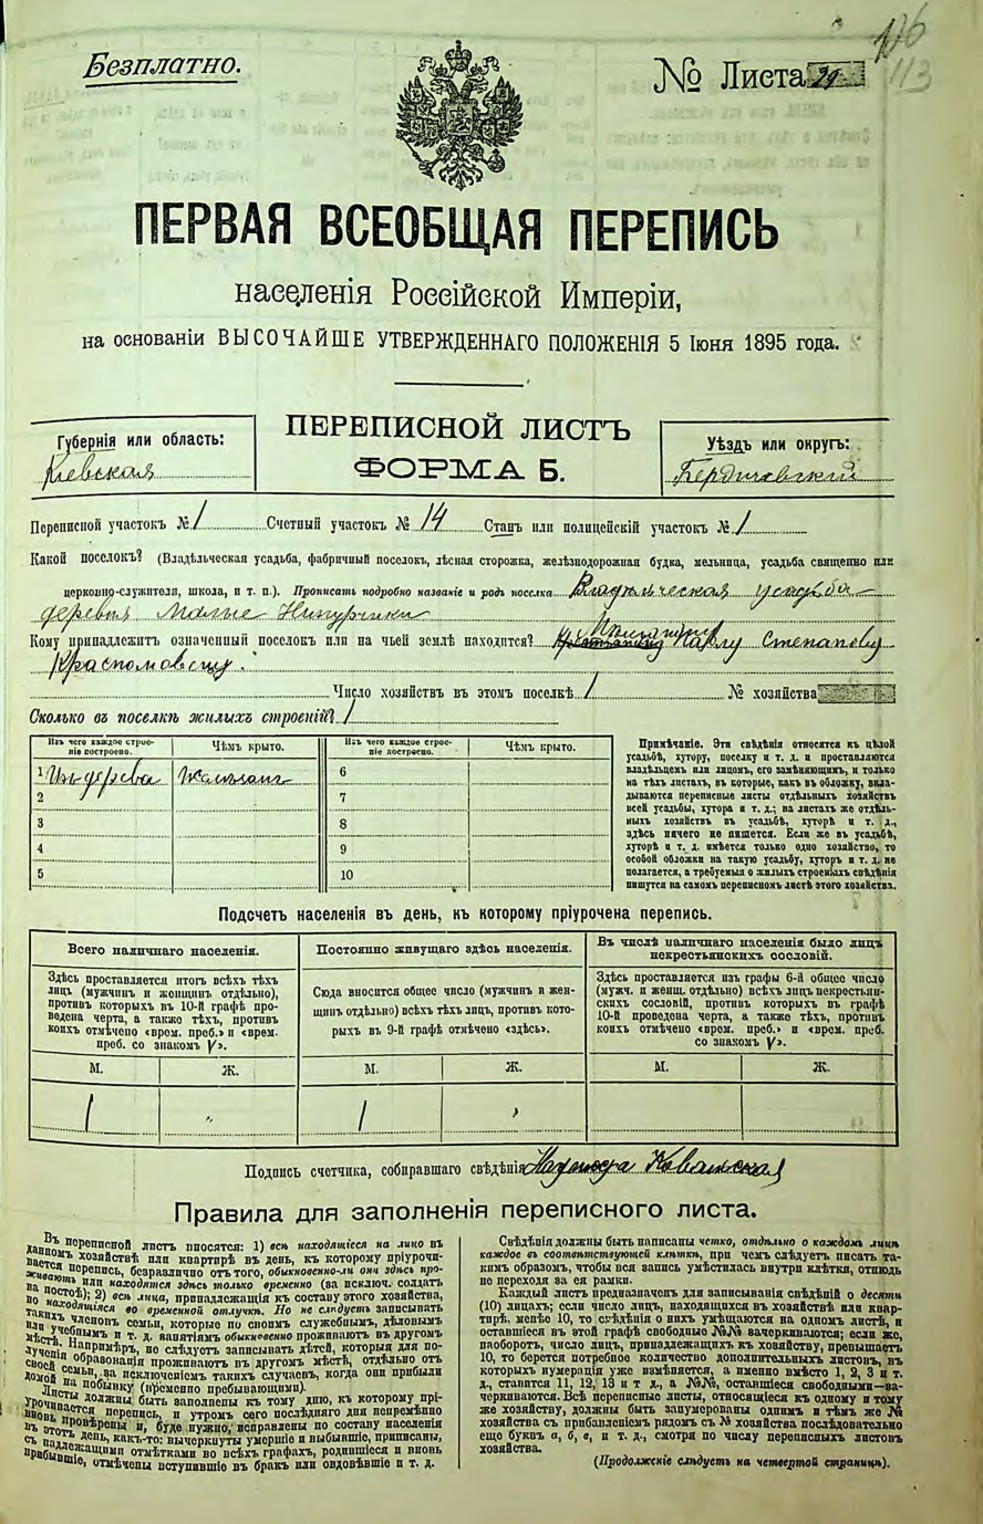 126
113
Безплатно.
№ Листа 29
ПЕРВАЯ ВСЕОБЩАЯ ПЕРЕПИСЬ
населенія Россійской Имперіи,
на основаніи ВЫСОЧАЙШЕ УТВЕРЖДЕННАГО ПОЛОЖЕНІЯ 5 Іюня 1895 года.
Губернія или область:
Кіевская
ПЕРЕПИСНОЙ ЛИСТЪ
ФОРМА Б.
Уѣздъ или округъ:
Бердичевскій
Переписной участокъ № 1 Счетный участокъ № 14 Станъ или полицейскій участокъ № 1
Какой поселокъ? (Владѣльческая усадьба, фабричный поселокъ, лѣсная сторожка, желѣзнодорожная будка, мельница, усадьба священно или
церковно-служителя, школа, и т. п.). Прописать подробно названіе и родъ поселка Владѣльческая усадьба
деревня Малые Низгурцы
Кому принадлежитъ означенный поселокъ или на чьей землѣ находится? Павлу Степанову
Красномовецу.
Число хозяйствъ въ этомъ поселкѣ 1 № хозяйства
Сколько въ поселкѣ жилыхъ строеній? 1
Изъ чего каждое строе-
ніе построено.
Чѣмъ крыто.
Изъ чего каждое строе-
ніе построено.
Чѣмъ крыто.
1 Изъ дерева
6
2
7
3
8
4
9
5
10
Примѣчаніе. Эти свѣдѣнія относятся къ цѣлой
усадьбѣ, хутору, поселку и т. д. и проставляются
владѣльцемъ или лицомъ, его замѣняющимъ, и только
на тѣхъ листахъ, въ которые, какъ въ обложку, вкла-
дываются переписные листы отдѣльныхъ хозяйствъ
всей усадьбы, хутора и т. д.; на листахъ же отдѣль-
ныхъ хозяйствъ въ усадьбѣ, хуторѣ и т. д.,
здѣсь ничего не пишется. Если же въ усадьбѣ,
хуторѣ и т. д. имѣется только одно хозяйство, то
особой обложки на такую усадьбу, хуторъ и т. д. не
полагается, а требуемыя о жилыхъ строеніяхъ свѣдѣнія
пишутся на самомъ переписномъ листѣ этого хозяйства.
Подсчетъ населенія въ день, къ которому пріурочена перепись.
Всего наличнаго населенія.
Здѣсь проставляется итогъ всѣхъ тѣхъ
лицъ (мужчинъ и женщинъ отдѣльно),
противъ которыхъ въ 10-й графѣ про-
ведена черта, а также тѣхъ, противъ
коихъ отмѣчено «врем. преб.» и «врем.
преб. со знакомъ V».
Постоянно живущаго здѣсь населенія.
Сюда вносится общее число (мужчинъ и жен-
щинъ отдѣльно) всѣхъ тѣхъ лицъ, противъ кото-
рыхъ въ 9-й графѣ отмѣчено «здѣсь».
Въ числѣ наличнаго населенія было лицъ
некрестьянскихъ сословій.
Здѣсь проставляется изъ графы 6-й общее число
(мужч. и женщ. отдѣльно) всѣхъ лицъ некрестьян-
скихъ сословій, противъ которыхъ въ графѣ
10-й проведена черта, а также тѣхъ, противъ
коихъ отмѣчено «врем. преб.» и «врем. преб.
со знакомъ V».
М. Ж. М. Ж. М. Ж.
1 " 1 "
Подпись счетчика, собиравшаго свѣдѣнія Надежда Ковальская
Правила для заполненія переписного листа.
Въ переписной листъ вносятся: 1) всѣ находящіеся на лицо въ
данномъ хозяйствѣ или квартирѣ въ день, къ которому пріурочи-
вается перепись, безразлично отъ того, обыкновенно-ли они здѣсь про-
живаютъ или находятся здѣсь только временно (за исключ. солдатъ
на постоѣ); 2) всѣ лица, принадлежащія къ составу этого хозяйства,
но находящіяся во временной отлучкѣ. Но не слѣдуетъ записывать
такихъ членовъ семьи, которые по своимъ служебнымъ, дѣловымъ
или учебнымъ и т. д. занятіямъ обыкновенно проживаютъ въ другомъ
мѣстѣ. Напримѣръ, не слѣдуетъ записывать дѣтей, которыя для по-
лученія образованія проживаютъ въ другомъ мѣстѣ, отдѣльно отъ
своей семьи, за исключеніемъ такихъ случаевъ, когда они прибыли
домой на побывку (временно пребывающими).
Листы должны быть заполнены къ тому дню, къ которому прі-
урочивается перепись, и утромъ сего послѣдняго дня непремѣнно
вновь провѣрены и, буде нужно, исправлены по составу населенія
въ этотъ день, какъ-то: вычеркнуты умершіе и выбывшіе, приписаны,
съ надлежащими отмѣтками во всѣхъ графахъ, родившіеся и вновь
прибывшіе, отмѣчены вступившіе въ бракъ или овдовѣвшіе и т. д.
Свѣдѣнія должны быть написаны четко, отдѣльно о каждомъ лицѣ
каждое въ соотвѣтствующей клѣткѣ, при чемъ слѣдуетъ писать та-
кимъ образомъ, чтобы вся запись умѣстилась внутри клѣтки, отнюдь
не переходя за ея рамки.
Каждый листъ предназначенъ для записыванія свѣдѣній о десяти
(10) лицахъ; если число лицъ, находящихся въ хозяйствѣ или квар-
тирѣ, менѣе 10, то свѣдѣнія о нихъ умѣщаются на одномъ листѣ, и
оставшіеся въ этой графѣ свободные №№ вачеркиваются; если же,
наоборотъ, число лицъ, принадлежащихъ къ хозяйству, превышаетъ
10, то берется потребное количество дополнительныхъ листовъ, въ
которыхъ нумерація уже измѣняется, а именно вмѣсто 1, 2, 3 и т.
д., ставится 11, 12, 13 и т д., а №№, оставшіеся свободными—за-
черкиваются. Всѣ переписные листы, относящіеся къ одному и тому
же хозяйству, должны быть занумерованы однимъ и тѣмъ же №
хозяйства съ прибавленіемъ рядомъ съ № хозяйства послѣдовательно
еще буквъ а, б, в, и т. д., смотря по числу переписныхъ листовъ
хозяйства.
(Продолженіе слѣдуетъ на четвертой страницѣ).